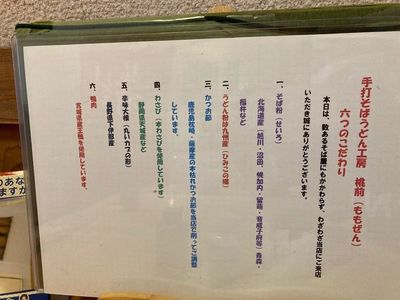 手打そばうどん工房 桃前（ももぜん）
六つのこだわり
本日は、数あるそば屋にもかかわらず、わざわざ当店にご来店
いただき誠にありがとうございます。
一、そば粉（せいろ）
北海道産（旭川・沼田・幌加内・留萌・音威子府等）青森・
福井など
二、うどん粉は九州産（ひみこの郷）
三、かつお節
鹿児島枕崎・薩摩産の本枯れかつお節を当店で削ってご調整
しています。
四、わさび（本わさびを使用しています）
静岡県天城産など
五、辛味大根（丸いカブの形）
長野県下伊那産
六、鴨肉
宮城県産王鴨を使用しています。
のあな
ますか